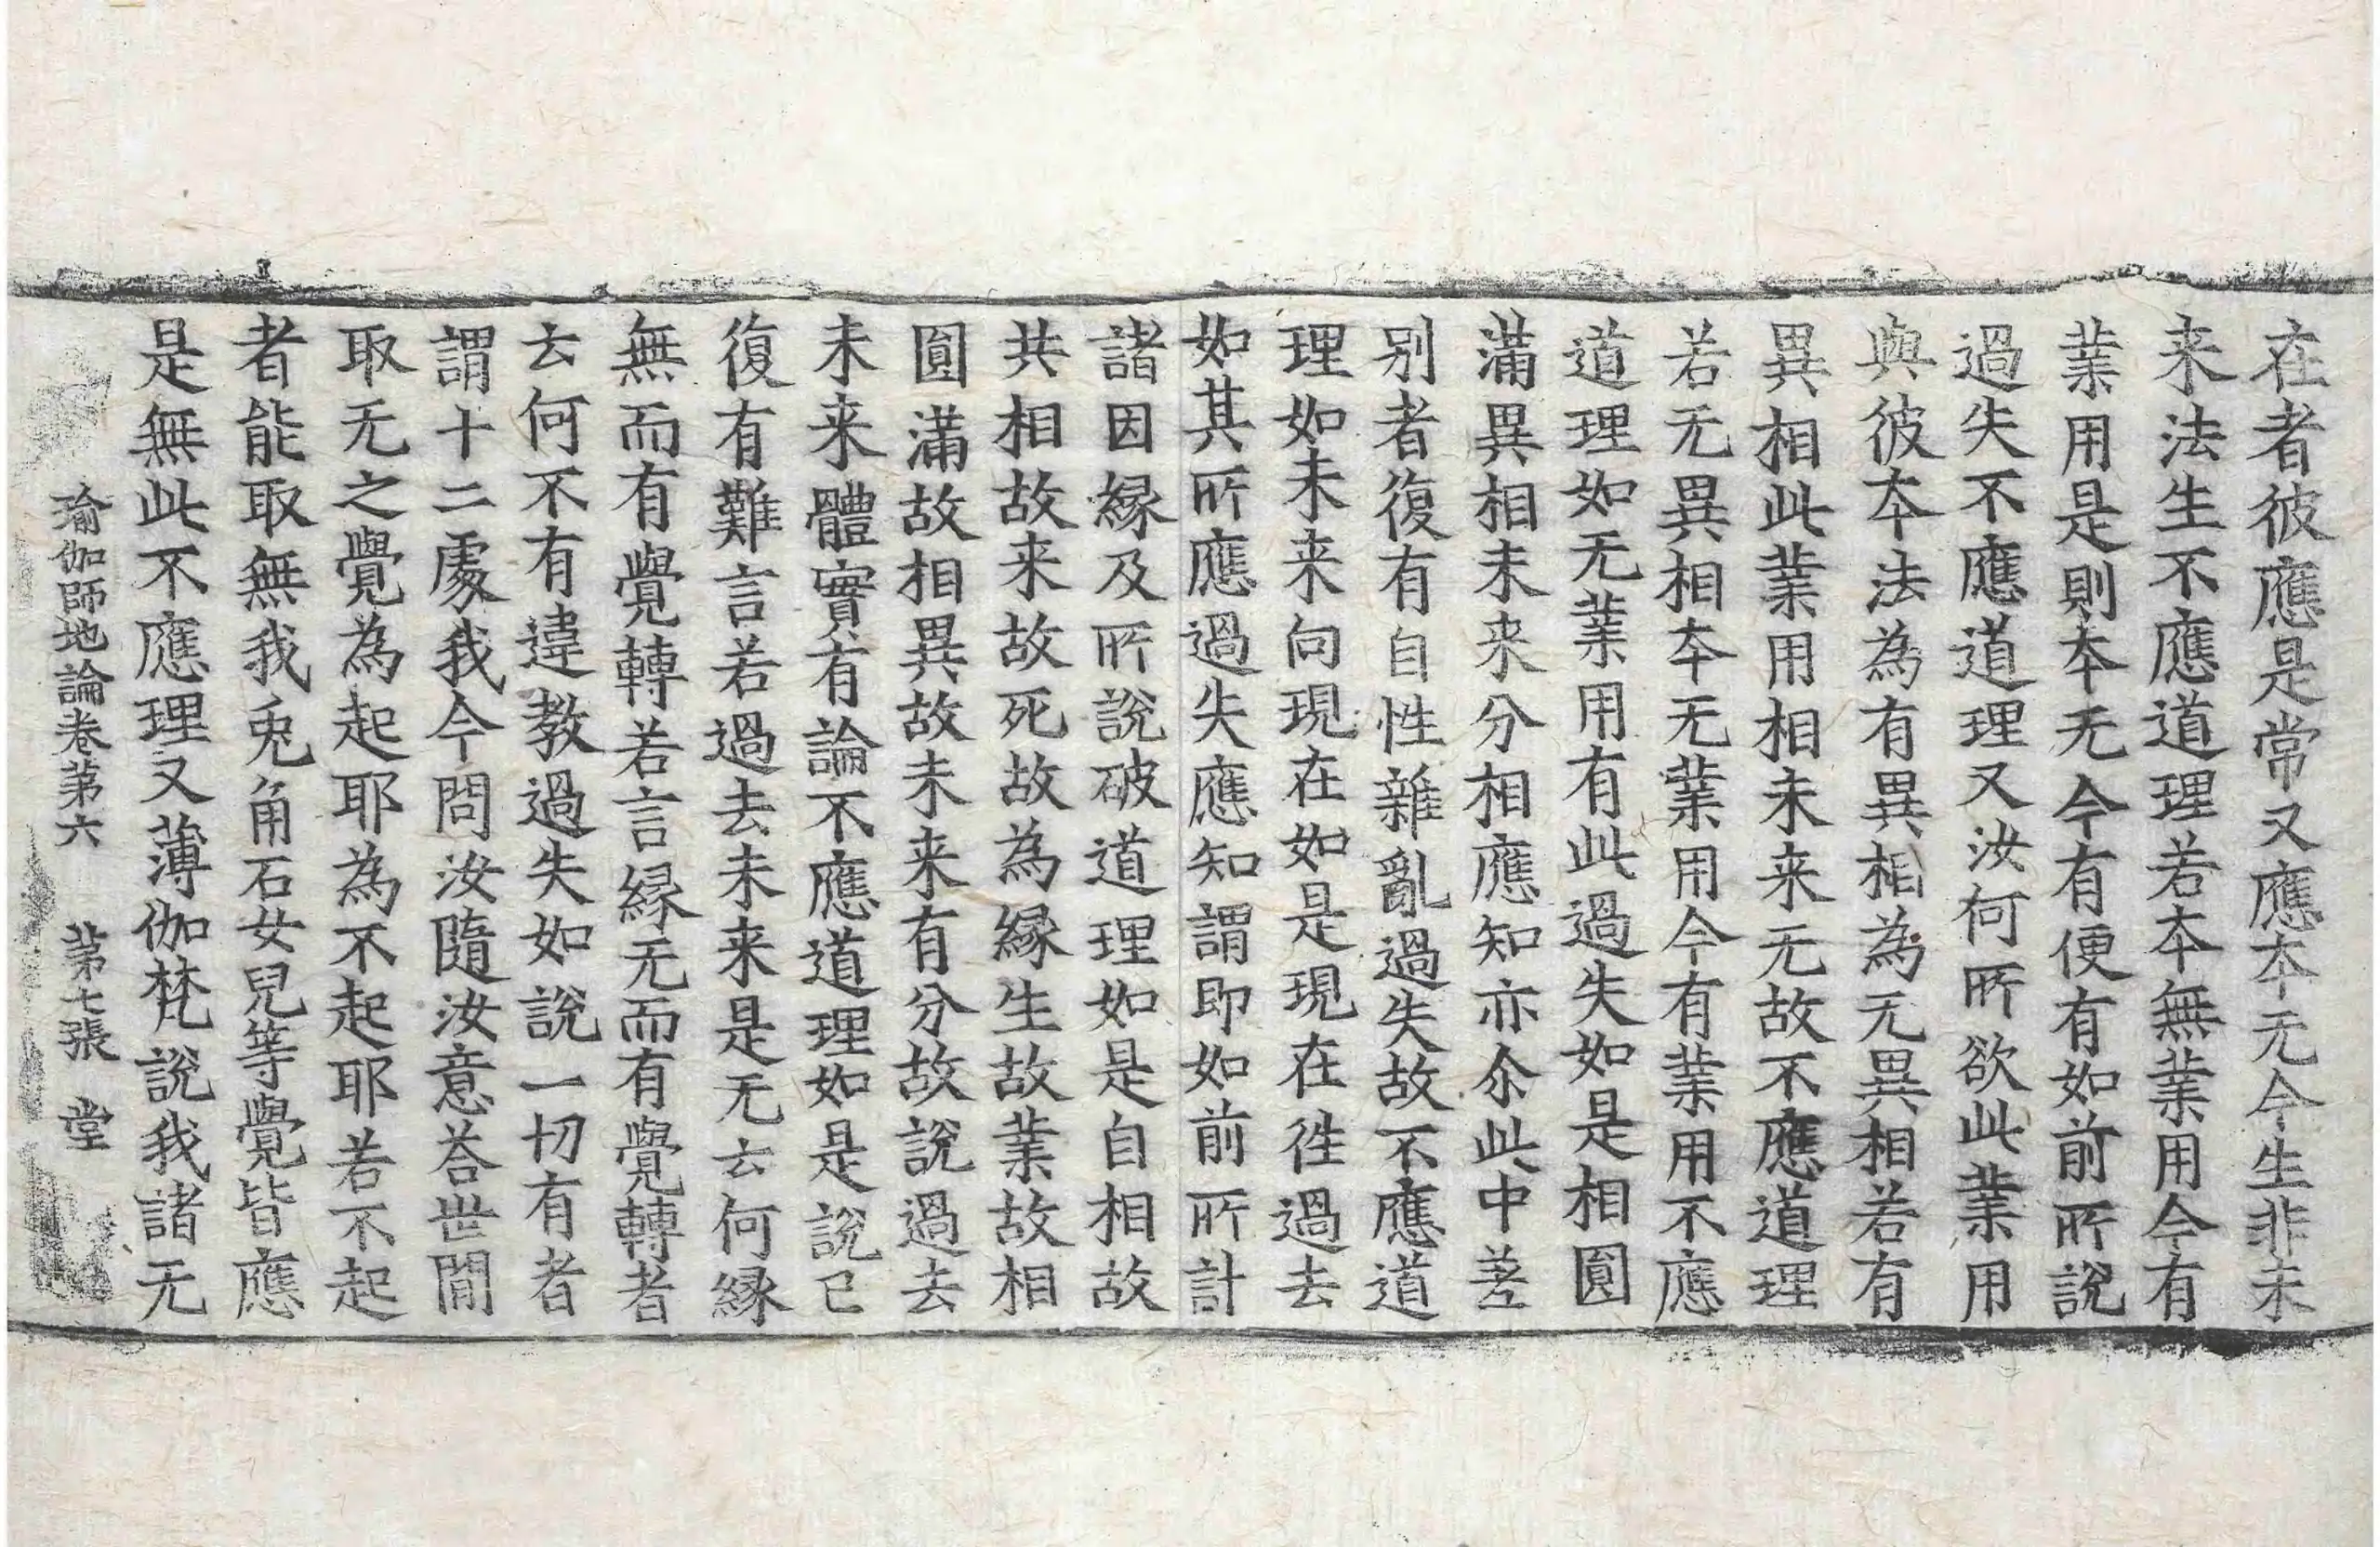 在者彼應是常又應本无今生非未
来法生不應道理若本無業用今有
業用是則本无今有便有如前所說
過失不應道理又汝何所欲此業用
與彼本法為有異相為无異相若有
異相此業用相未来无故不應道理
若无異相本无業用今有業用不應
道理如无業用有此過失如是相圓
滿異相未来分相應知亦尒此中差
別者復有自性雜亂過失故不應道
理如未来向現在如是現在徃過去
如其所應過失應知謂即如前所計
諸因縁及所說破道理如是自相故
共相故来故死故為縁生故業故相
圓滿故相異故未来有分故說過去
未来體實有論不應道理如是說已
復有難言若過去未来是无云何縁
無而有覺轉若言縁无而有覺轉者
云何不有違教過失如說一切有者
謂十二處我今問汝隨汝意荅世閒
取无之覺為起耶為不起耶若不起
者能取無我兎角石女兒等覺皆應
是無此不應理又薄伽梵說我諸无
瑜伽師地論卷第六 第七張 堂